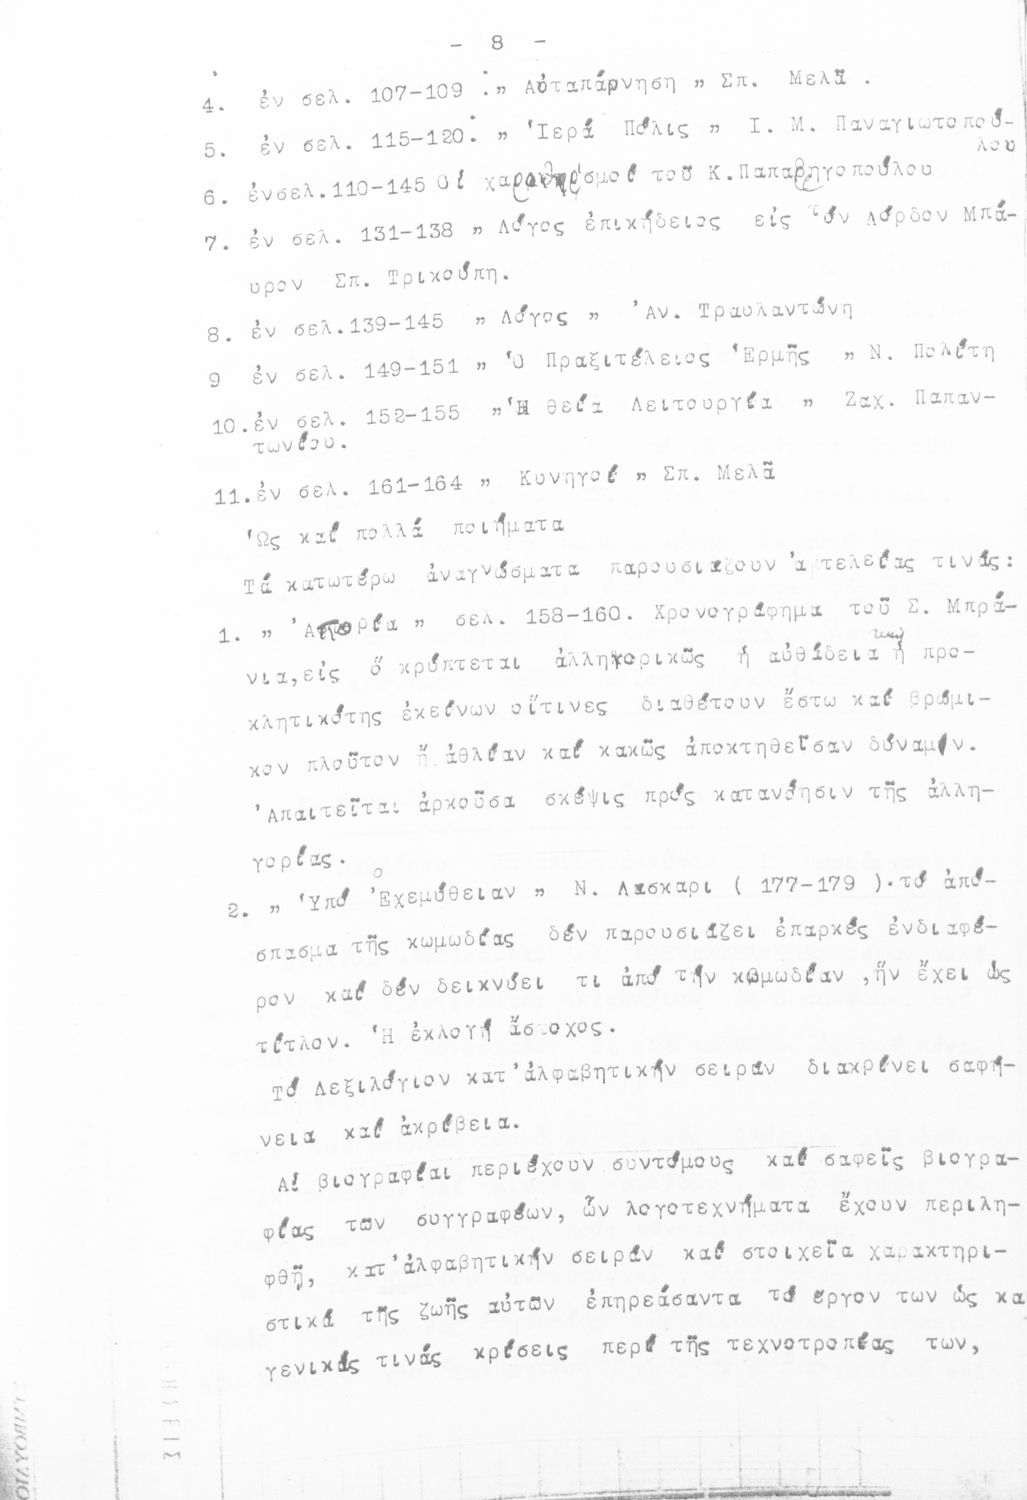 - 8 -
4. ἐν σελ. 107-109 :„ Αὐταπάρνηση „ Σπ. Μελᾶ .
5. ἐν σελ. 115-120: „ Ἱερά Πόλις „ Ι. Μ. Παναγιωτοπού-
λου
6. ἐνσελ.110-145 Οἱ χαρακτηρισμοί τοῦ Κ.Παπαρρηγοπούλου
7. ἐν σελ. 131-138 „ Λόγος ἐπικήδειος εἰς τόν Λόρδον Μπά-
υρον Σπ. Τρικούπη.
8. ἐν σελ.139-145 „ Λόγος „ Ἀν. Τραυλαντώνη
9 ἐν σελ. 149-151 „ Ὁ Πραξιτέλειος Ἑρμῆς „ Ν. Πολίτη
10.ἐν σελ. 152-155 „Ἡ θεία Λειτουργία „ Ζαχ. Παπαν-
τωνίου.
11.ἐν σελ. 161-164 „ Κυνηγοί „ Σπ. Μελᾶ
Ὡς καί πολλά ποιήματα
Τά κατωτέρω ἀναγνώσματα παρουσιάζουν ἀτελείας τινάς:
1. „ Ἀπορία „ σελ. 158-160. Χρονογράφημα τοῦ Σ. Μπρά-
νια,εἰς ὅ κρύπτεται ἀλληγορικῶς ἡ αὐθάδεια καί ἡ προ-
κλητικότης ἐκείνων οἵτινες διαθέτουν ἔστω καί βρώμι-
κον πλοῦτον ἤ ἀθλίαν καί κακῶς ἀποκτηθεῖσαν δύναμιν.
Ἀπαιτεῖται ἀρκοῦσα σκέψις πρός κατανόησιν τῆς ἀλλη-
γορίας.
2. „ Ὑπό Ἐχεμύθειαν „ Ν. Λάσκαρι ( 177-179 ).τό ἀπό-
σπασμα τῆς κωμωδίας δέν παρουσιάζει ἐπαρκές ἐνδιαφέ-
ρον καί δέν δεικνύει τι ἀπό τήν κωμωδίαν ,ἥν ἔχει ὡς
τίτλον. Ἡ ἐκλογή ἄστοχος.
Τό Λεξιλόγιον κατ'ἀλφαβητικήν σειράν διακρίνει σαφή-
νεια καί ἀκρίβεια.
Αἱ βιογραφίαι περιέχουν συντόμους καί σαφεῖς βιογρα-
φίας τῶν συγγραφέων, ὧν λογοτεχνήματα ἔχουν περιλη-
φθῆ, κατ'ἀλφαβητικήν σειράν καί στοιχεῖα χαρακτηρι-
στικά τῆς ζωῆς αὐτῶν ἐπηρεάσαντα τό ἔργον των ὡς κα
γενικάς τινάς κρίσεις περί τῆς τεχνοτροπίας των,